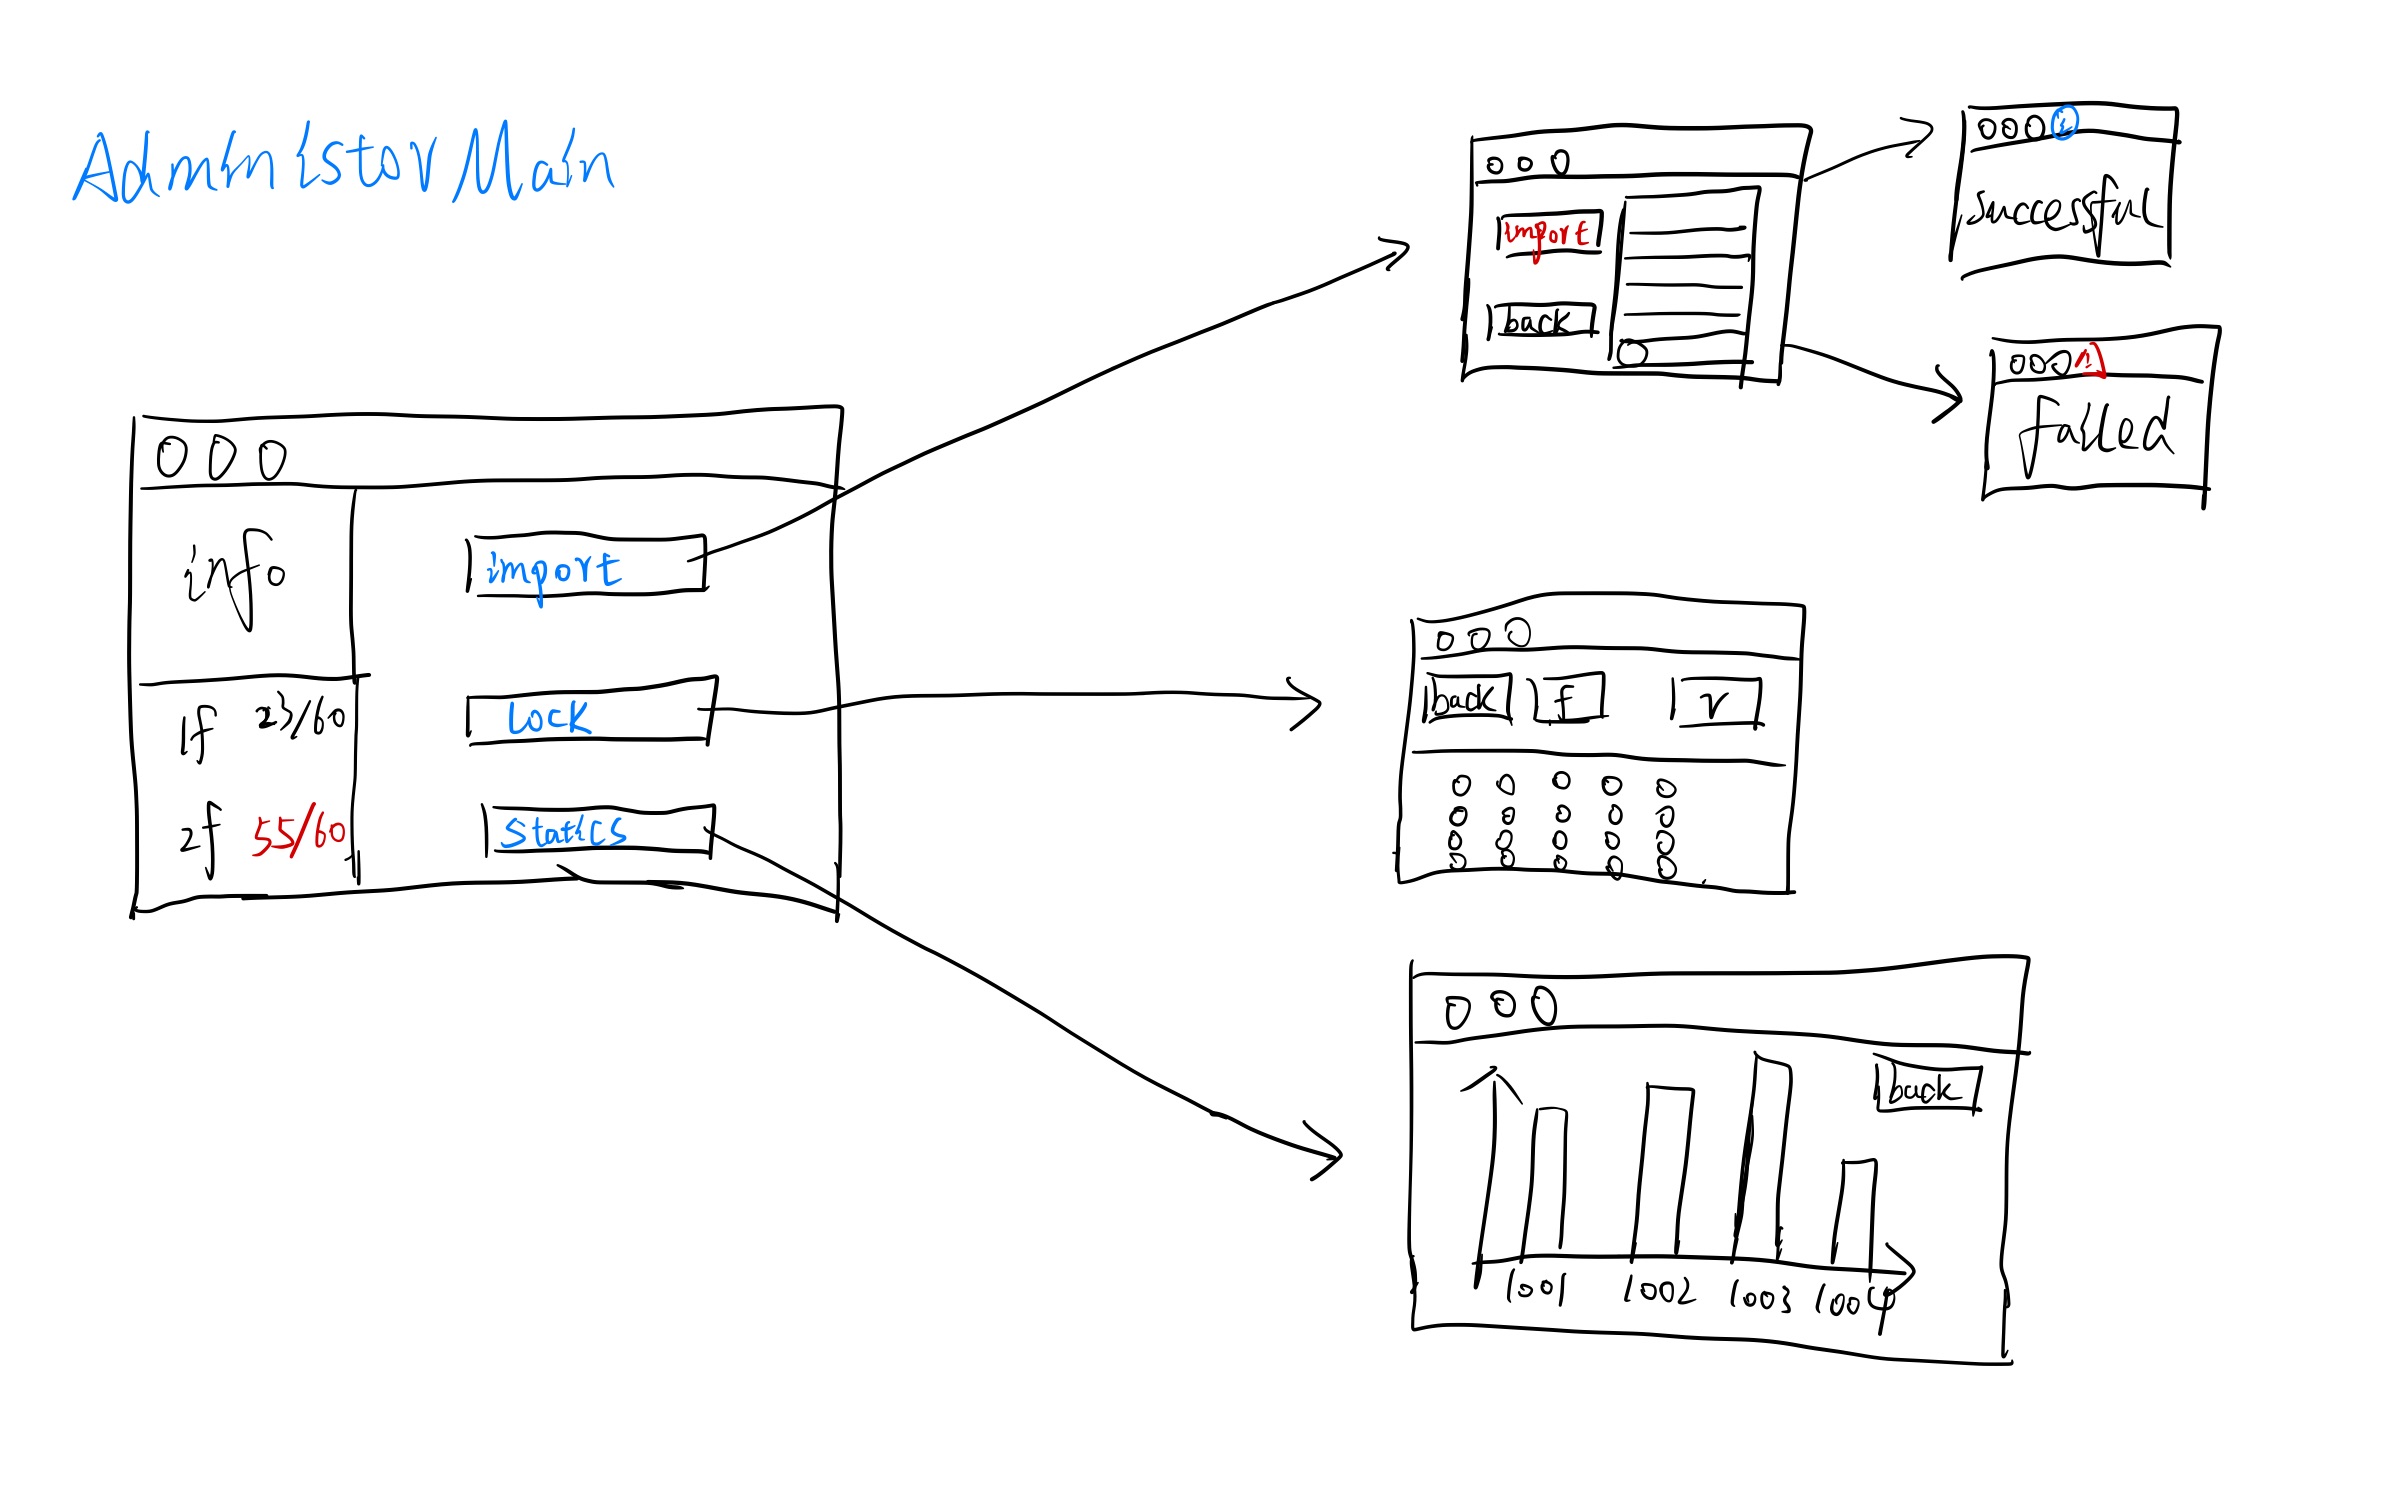 AdministorMain
info
1f 23/60
2f 55/60
import
lock
statics
import
back
successful
failed
back
f
r
back
1001 1002 1003 1004